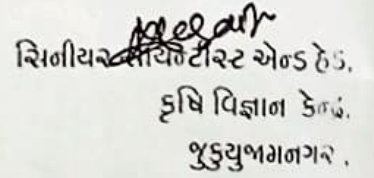 સિનીયર સાયન્ટીસ્ટ એન્ડ હેડ.
કૃષિ વિજ્ઞાન કેન્દ્ર.
જુકૃયુજામનગર.